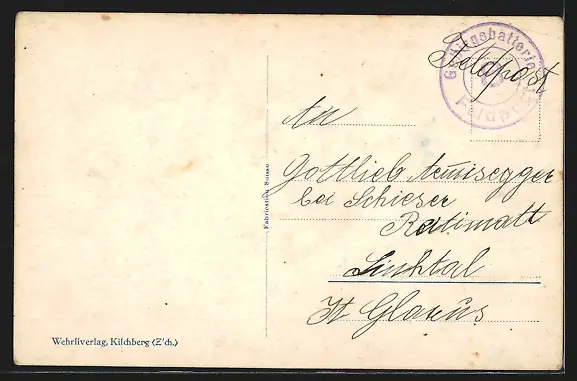 Gebirgsbatterie
Feldpost
Feldpost
An
Gottlieb Aemisegger
bei Schieser
Ratimatt
Linthal
Kt Glarus
Fabrication Suisse
Wehrliverlag, Kilchberg (Z'ch.)